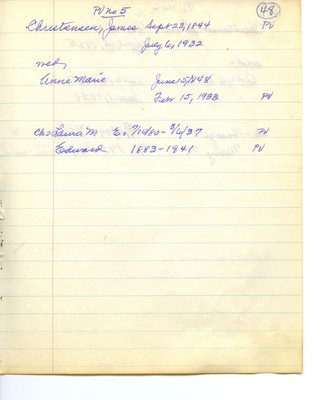 PV no 5 48
Christensen, James Sept 23, 1844 PV
July 6, 1932
wid
Anne Marie June 15 1848
Febr 15, 1933 PV
Ch: Laura M 7/1980 - 3/6/37 PV
Edward 1883-1941 PV